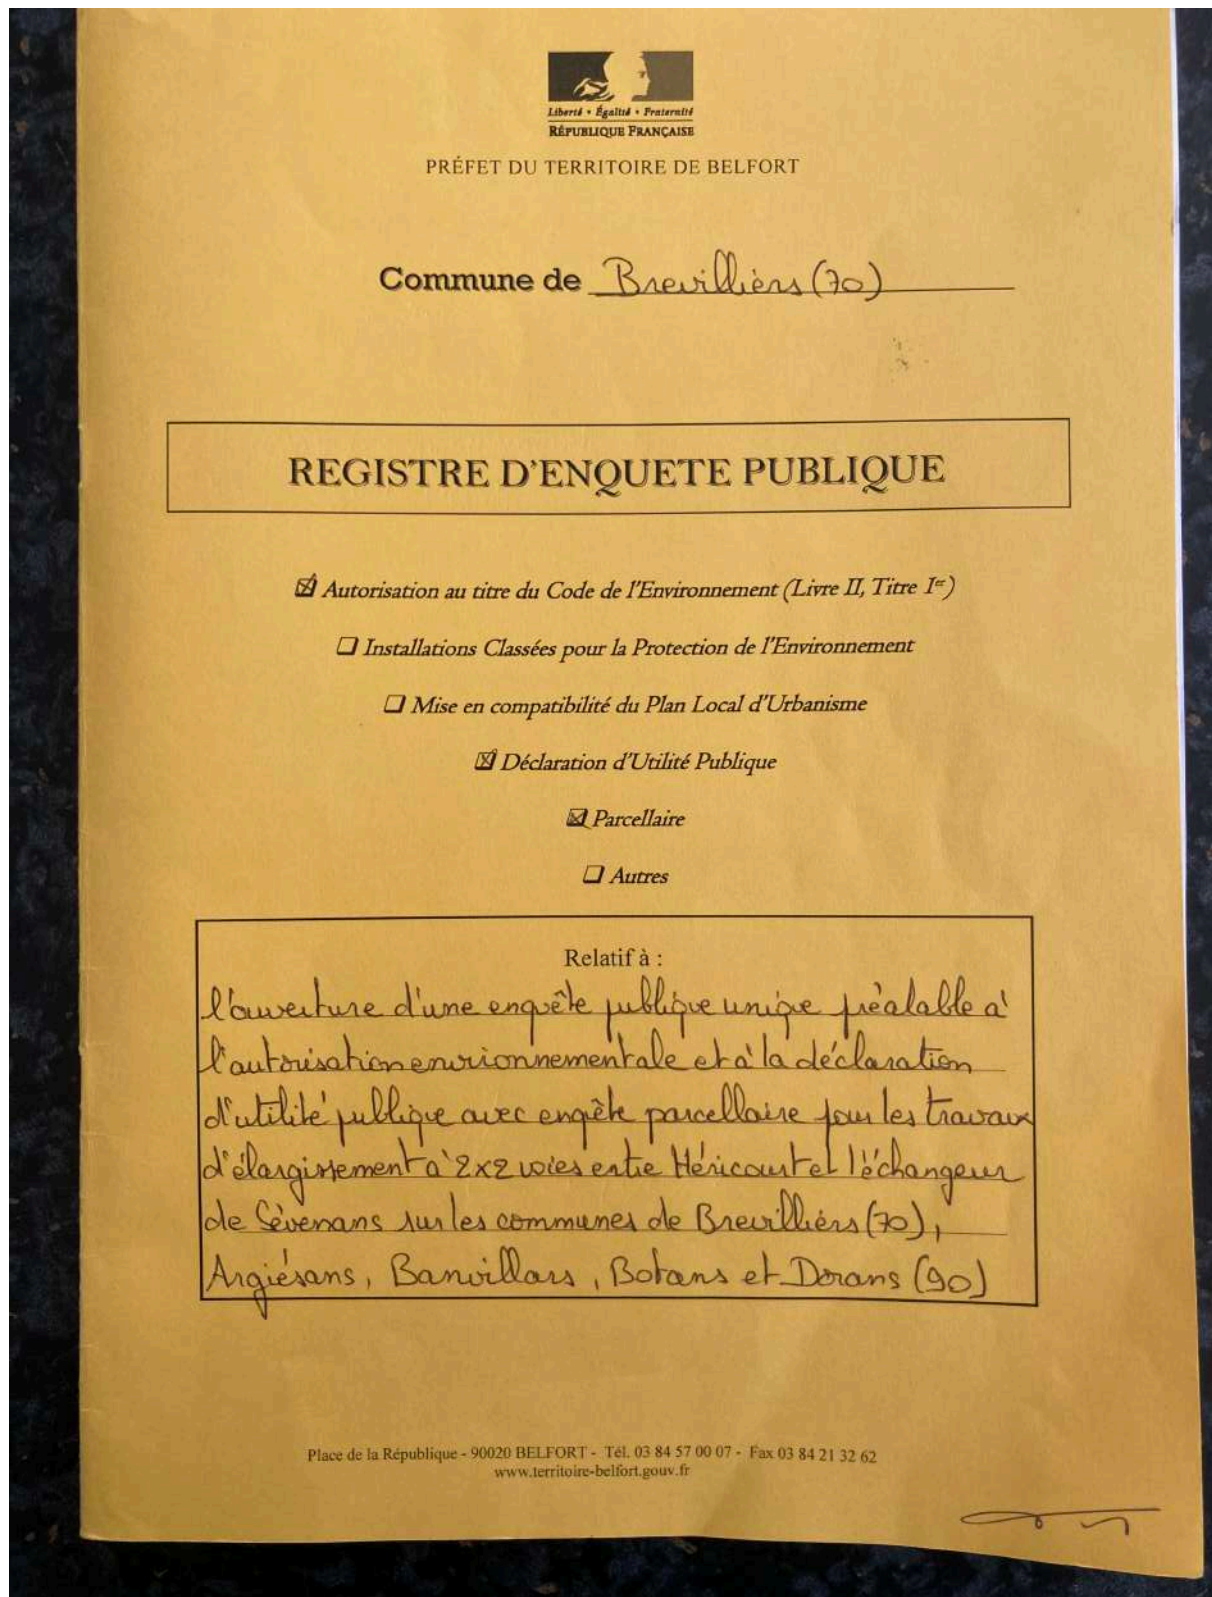 Liberté • Égalité • Fraternité
RÉPUBLIQUE FRANÇAISE
PRÉFET DU TERRITOIRE DE BELFORT
Commune de Brevilliers (70)
REGISTRE D'ENQUETE PUBLIQUE
☒ Autorisation au titre du Code de l'Environnement (Livre II, Titre Iᵉʳ)
❑ Installations Classées pour la Protection de l'Environnement
❑ Mise en compatibilité du Plan Local d'Urbanisme
☒ Déclaration d'Utilité Publique
☒ Parcellaire
❑ Autres
Relatif à :
l'ouverture d'une enquête publique unique préalable à
l'autorisation envrionnementale et à la déclaration
d'utilité publique avec enqête parcellaire pour les travaux
d'élargissement à 2x2 voies entre Héricourt et l'échangeur
de Sévenans sur les communes de Brevilliers (70),
Argiésans, Banvillars, Botans et Dorans (90)
Place de la République - 90020 BELFORT - Tél. 03 84 57 00 07 - Fax 03 84 21 32 62
www.territoire-belfort.gouv.fr